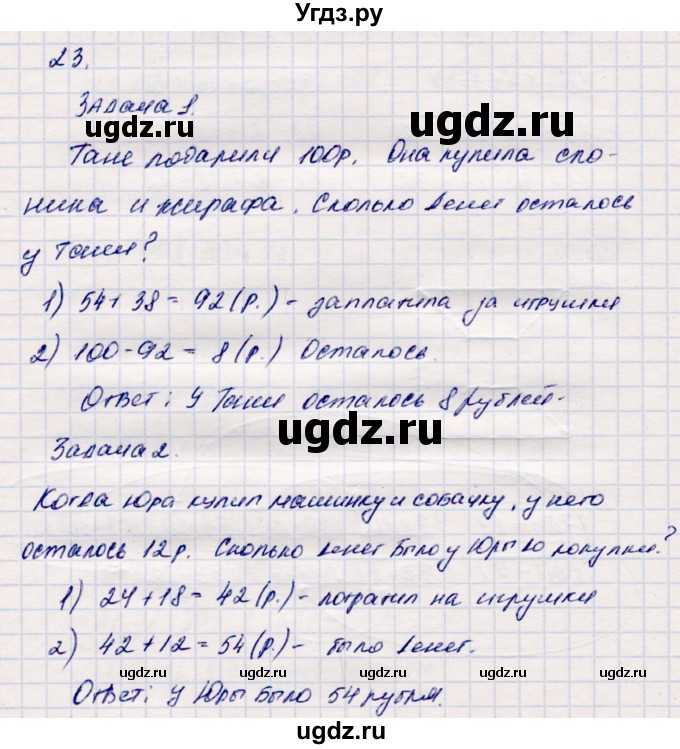 Угдз.ру
23.
ugdz.ru
Задача 1.
ugdz.ru
Тане подарили 100р. Она купила сло-
ника и жирафа. Сколько денег осталось
у Тани?
1) 54+38=92(р.) - заплатила за игрушки
2) 100-92=8(р.) Осталось.
Ответ: У Тани осталось 8 рублей.
ugdz.ru
Задача 2.
Когда Юра купил машинку и собачку, у него
осталось 12р. Сколько денег было у Юры до покупки?
1) 24+18=42(р.) - потратил на игрушки
2) 42+12=54(р.) - было денег.
ugdz.ru
ugdz.ru
Ответ: У Юры было 54 рубля.
ugdz.ru